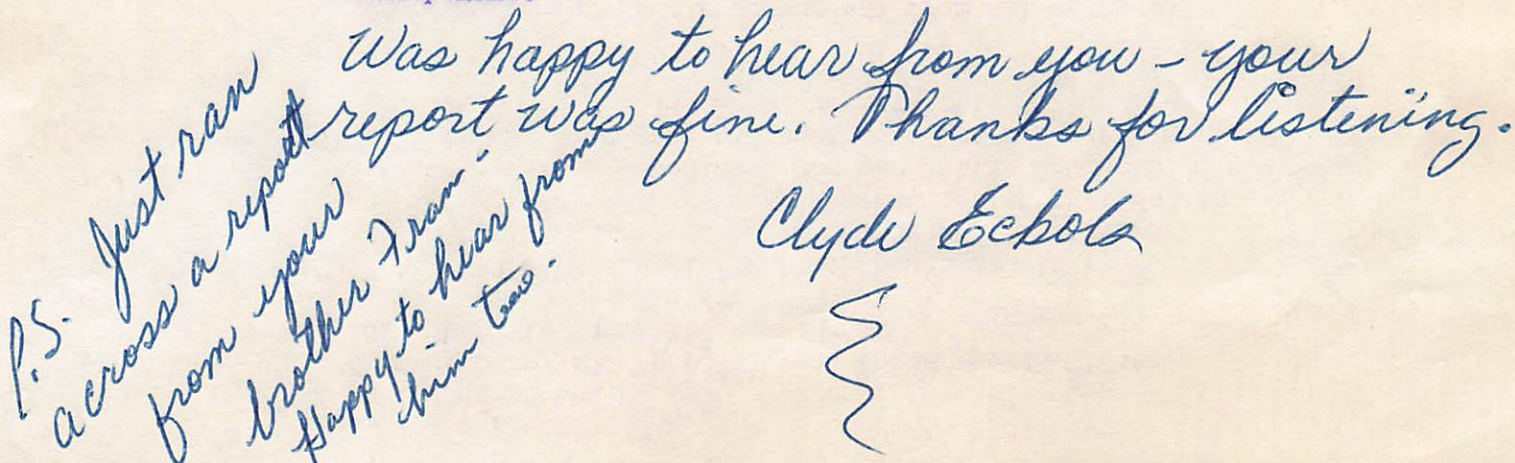 Was happy to hear from you - your
report was fine. Thanks for listening.
Clyde Echols
P.S. Just ran
across a report
from your
brother Fran-
Happy to hear from
him too.